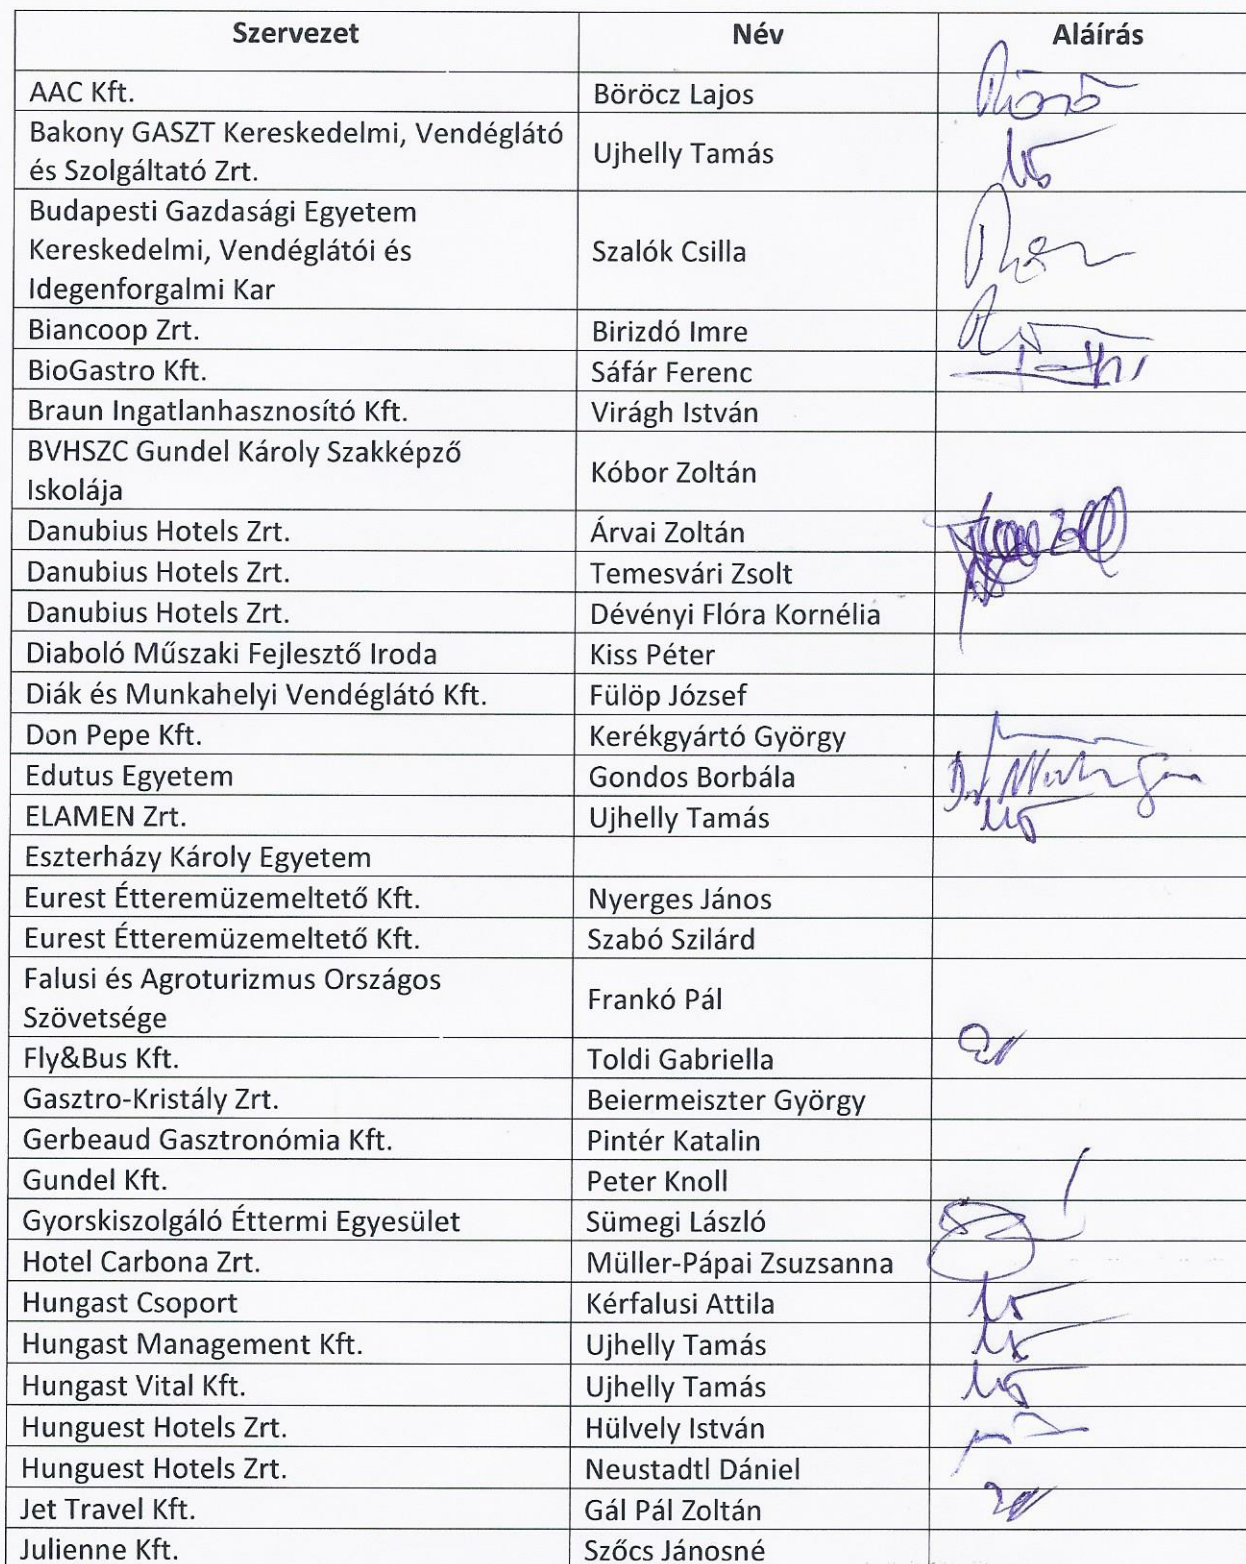 Szervezet Név Aláírás
AAC Kft. Böröcz Lajos
Bakony GASZT Kereskedelmi, Vendéglátó
és Szolgáltató Zrt. Ujhelly Tamás
Budapesti Gazdasági Egyetem
Kereskedelmi, Vendéglátói és Szalók Csilla
Idegenforgalmi Kar
Biancoop Zrt. Birizdó Imre
BioGastro Kft. Sáfár Ferenc
Braun Ingatlanhasznosító Kft. Virágh István
BVHSZC Gundel Károly Szakképző
Iskolája Kóbor Zoltán
Danubius Hotels Zrt. Árvai Zoltán
Danubius Hotels Zrt. Temesvári Zsolt
Danubius Hotels Zrt. Dévényi Flóra Kornélia
Diaboló Műszaki Fejlesztő Iroda Kiss Péter
Diák és Munkahelyi Vendéglátó Kft. Fülöp József
Don Pepe Kft. Kerékgyártó György
Edutus Egyetem Gondos Borbála
ELAMEN Zrt. Ujhelly Tamás
Eszterházy Károly Egyetem
Eurest Étteremüzemeltető Kft. Nyerges János
Eurest Étteremüzemeltető Kft. Szabó Szilárd
Falusi és Agroturizmus Országos
Szövetsége Frankó Pál
Fly&Bus Kft. Toldi Gabriella
Gasztro-Kristály Zrt. Beiermeiszter György
Gerbeaud Gasztronómia Kft. Pintér Katalin
Gundel Kft. Peter Knoll
Gyorskiszolgáló Éttermi Egyesület Sümegi László
Hotel Carbona Zrt. Müller-Pápai Zsuzsanna
Hungast Csoport Kérfalusi Attila
Hungast Management Kft. Ujhelly Tamás
Hungast Vital Kft. Ujhelly Tamás
Hunguest Hotels Zrt. Hülvely István
Hunguest Hotels Zrt. Neustadtl Dániel
Jet Travel Kft. Gál Pál Zoltán
Julienne Kft. Szőcs Jánosné